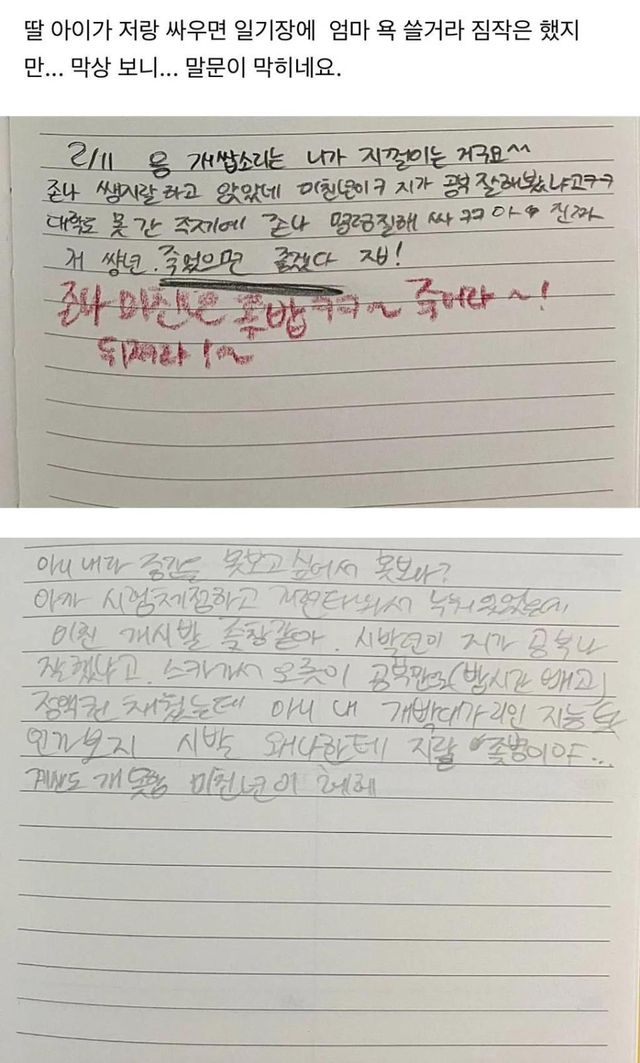 딸 아이가 저랑 싸우면 일기장에 엄마 욕 쓸거라 짐작은 했지
만... 막상 보니... 말문이 막히네요.
2/11 응 개쌉소리는 니가 지껄이는 거구요^^
존나 쌩지랄하고 앉았네 미친년이ㅋ 지가 공부 잘해봤냐고ㅋㅋ
대학도 못 간 주제에 존나 명령질해 싸ㅋㅋ 아 진짜
저 쌍년. 죽었으면 좋겠다 지발!
존나 미친년 좆밥ㅋㅋ~ 죽어라~!
뒤져라!~
아니 내가 중간을 못보고 싶어서 못보나?
아까 시험채점하고 누워있었는데
미친 개시발 즙창같아. 시박년이 지가 공부나
잘했냐고. 스카가서 오롯이 공부만으로(밥시간 빼고)
정액권 채웠는데 아니 내 개박대가리인 지능
인가보지 시박 왜 나한테 지랄 좆병이야...
계산도 개못함 미친년이 헤헤